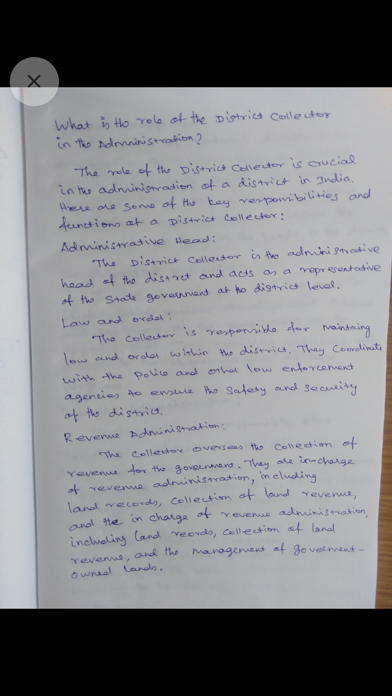 What is the role of the District Collector
in the Admninistration?
The role of the District Collector is crucial
in the administration of a district in India.
Here are some of the key responsibilities and
functions of a District Collector:
Administrative Head:
The District Collector is the administrative
head of the district and acts as a representative
of the State government at the district level.
Law and order:
The Collector is responsible for Maintaing
low and order within the district. They Coordinate
with the Police and other low enforcement
agencies to ensure the Safety and Security
of the district.
Revenue Administration:
The Collector oversees the collection of
revenue for the government. They are in-charge
of revenue administration, including
land records, collection of land revenue,
and the in charge of revenue administration,
including land records, collection of land
revenue, and the management of government-
owned lands.